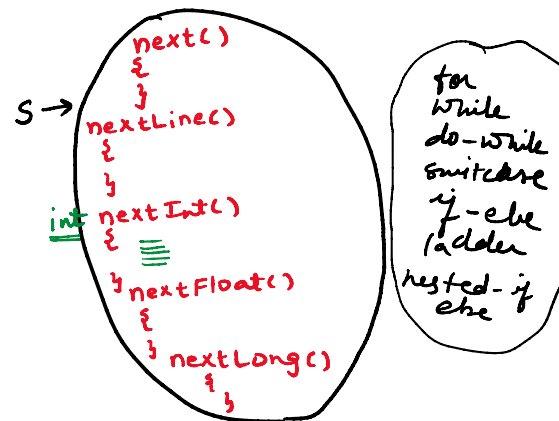 next()
{
}
S →
nextLine()
{
}
int nextInt()
{
}
nextFloat()
{
}
nextLong()
{
}
for
while
do-while
switcase
if-else
ladder
nested-if
else